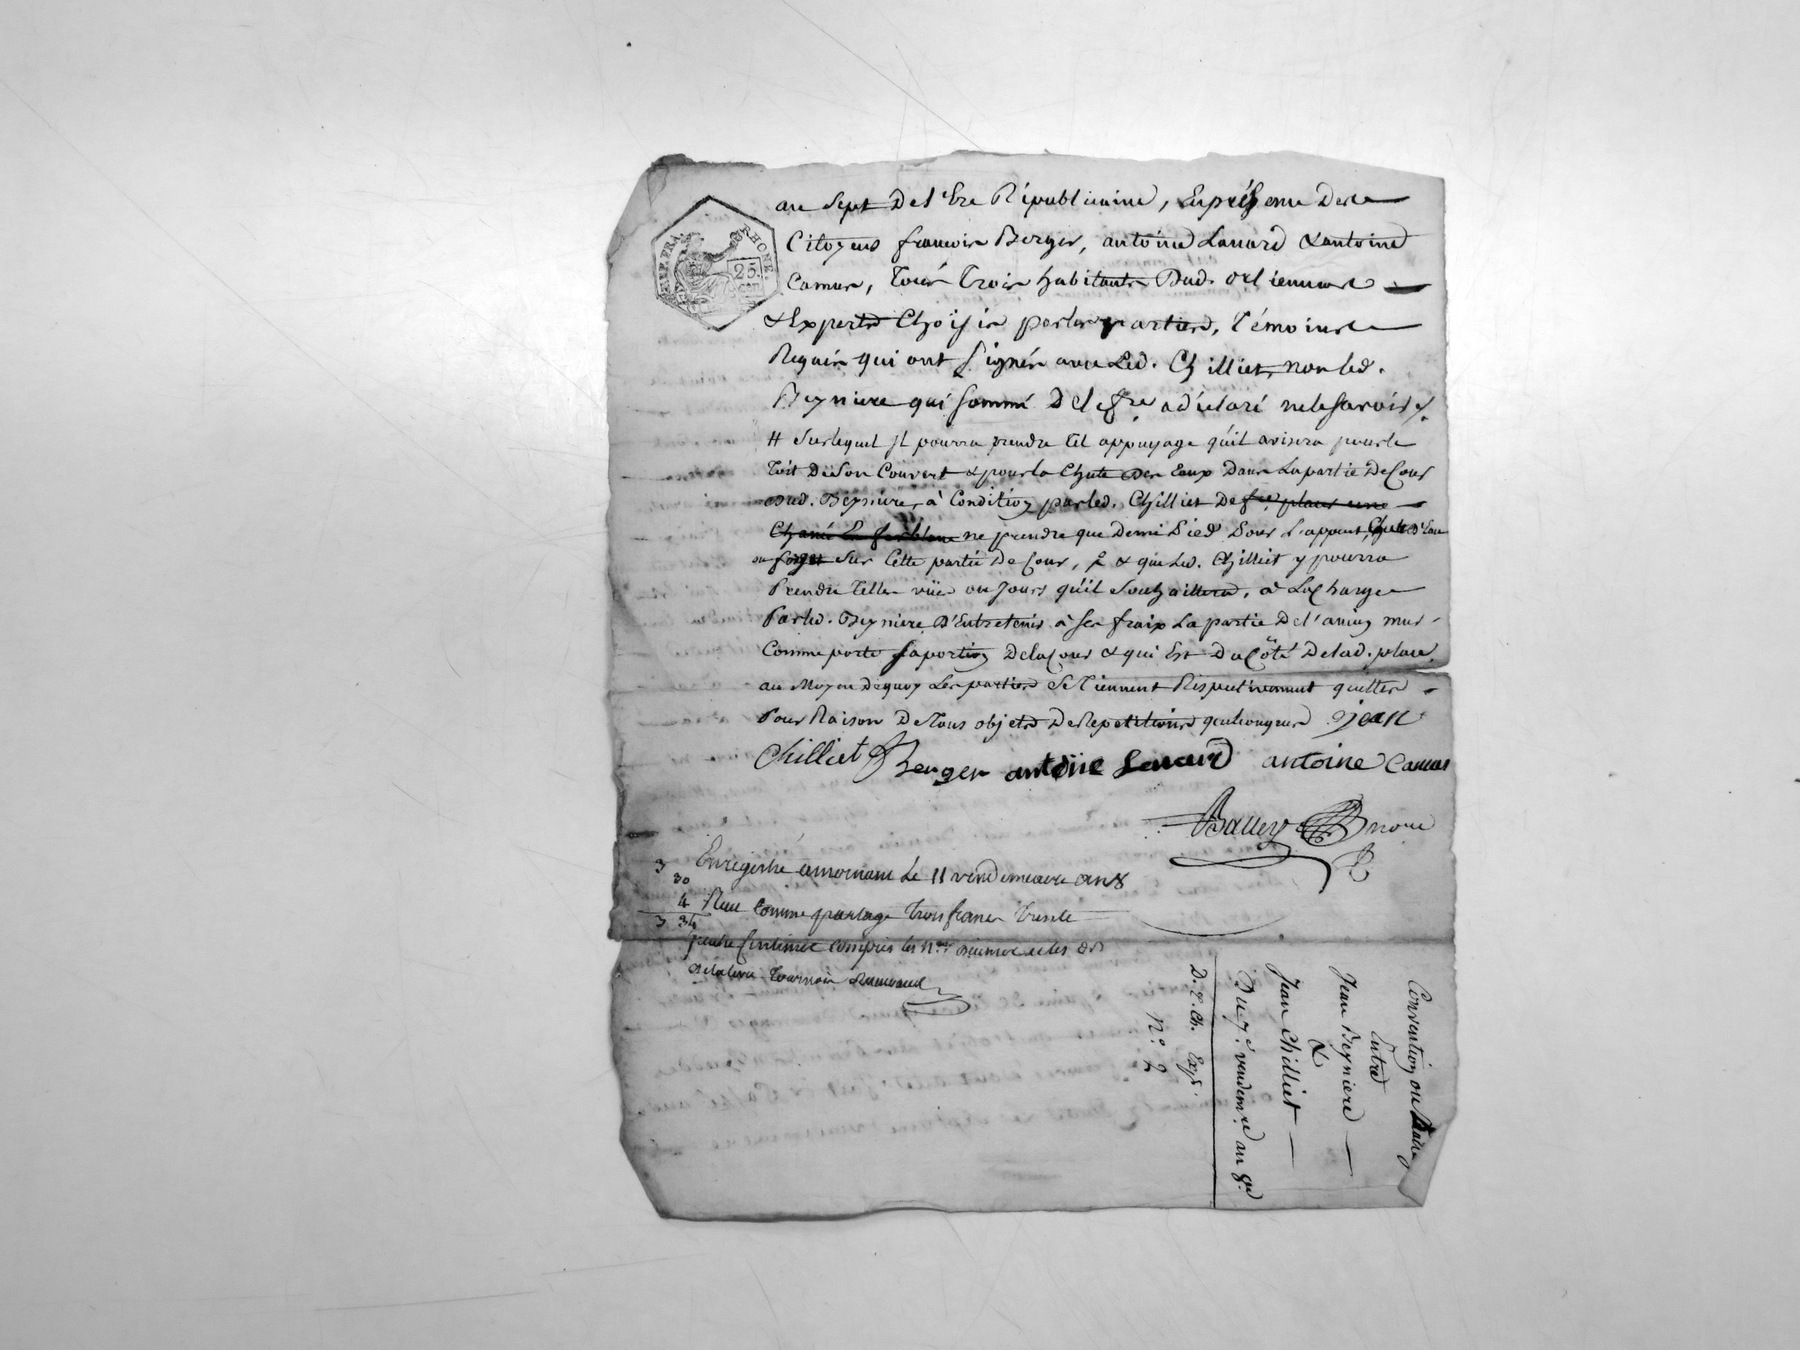 RHONE.
25.
an Sept De l'Ere Républicaine, En présence Des
Citoyens francois Berger, antoine Lanard & antoine
Camus, Tous Trois habitants Dud. orlienas
& Experts Choisis par les parties, Témoins
Requis qui ont signés avec Led. Chilliet, non led.
Beyniere qui sommé De le fre a déclaré ne le savoir
# sur lequel Jl pourra prendre tel appuyage qu'il avisera pour le
Toit De Son Couvert & pour la Chute Des Eaux Dans La partie De Cour
Dud. Beyniere, à Condition par led. Chilliet De fre placer une
Chanée En ferblanc ne prendre que Demi Pied Pour L'appent, Chute D'Eau
ou forget Sur Cette partie De Cour, & que Led. Chilliet y pourra
Prendre Telles vües ou Jours qu'il Souhaittera, à La Charge
Par led. Beyniere D'Entretenir à ses fraix La partie De l'ancien mur
Comme porte sa portion De la Cour & qui Est Du Côté De lad. place
au Moyen De quoy Les parties Se Tiennent Respectivement quittes
Pour Raison De Tous objets De Repetitions quelconques Jean
Chilliet Berger antoine Lanard antoine Camus
Balley nore
3 Enregistré à mornant le 11 vendemiaire an 8
30
4 Reçu comme partage Trois francs Trente
3 34
quatre Centimes compris les
Convention ou
Entre
Jean Beyniere
&
Jean Chilliet
Du 7e vendemre an 8e
D. q. Ch. Exp.
N°. 2